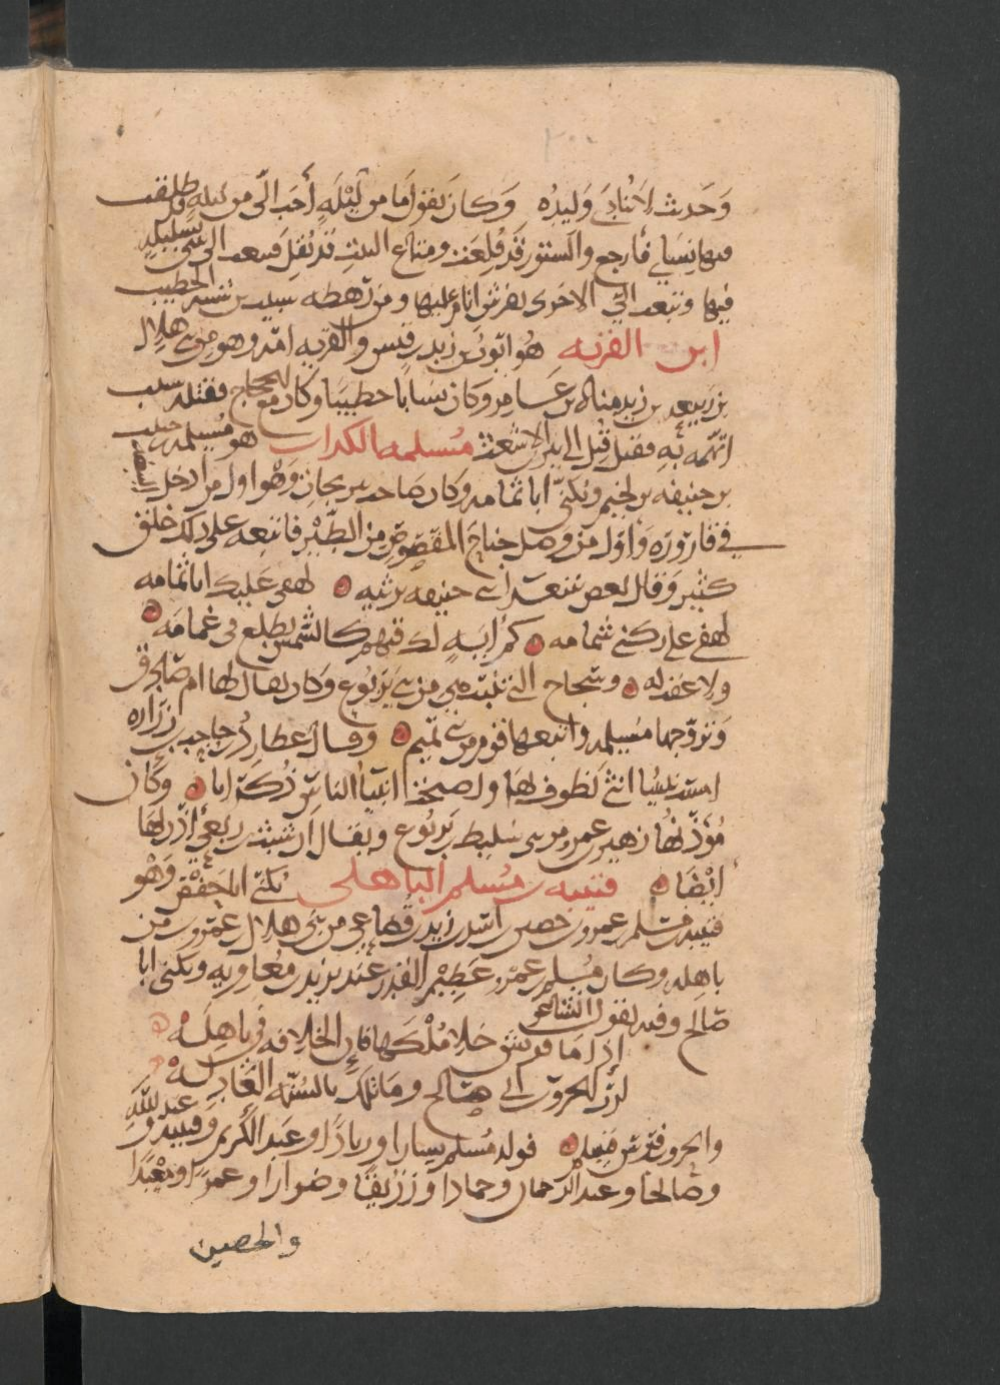 وَحَدث لاحْتاجَ وَليدُه وَكان يَقول مَا من لَيْلَةٍ أحَب الَّى من ليله قد طلقت
فيها نِسَاىِ فارجع والستور قَد قُلِعَت ومتاع البيتِ قَد نُقِلَ فتبعث الىَّ بسليله
فيها وتبعث الىَّ الاخرى بفرش انام عليها ومن رهطه شبيب بن شيبه الخطيب
ابن القريه هُو ايّوب بن زيد بن قيس والقريه امّه وهو مِن بنى هلال
بن ربيعه بن زيد مناه بن عَامِر وكان نسابا خطيبًا وكان مع الحجاج فقتله بسبب
اتهمه به مُسيلمه الكداب هو مُسيلمه بن حبيب
بن حنيفه بن لجيم ويُكنىّ ابا ثمامه وكان صاحب نيرنجات وَهْو اول من ادخل البيضه
فى قاروره وَاول من وصل جناح المقصُوص من الطّيْر فاتبعه على ذلك خلق
كثير وَقال بعض شعراء بنى حنيفه يرثيه لهفى عَليك ابا ثمامه
لهفى على ركنى شمامه كم ايَه لك فيهم كالشمس تطلع فى غمامَه
ولا عقب له وسجاح التى تنبت هى من بنى يَرْبُوع وَكان يقال لها ام صَادر
وَتزوّجها مُسيلمه واتبعها قوم من بنى تميم وقال عطارد بن حاجب بن زراره
امست نبيُنا انثى نَطوف لَهَا واصبحت انبيَا الناس ذكرانا وكان
مُؤذّنُها زهير بن عمرو من بنى سَليط بن يربُوع ويقال ان شبث بن ربعى اذّن لَهَا
ايْضًا قتيبه بن مُسلم الباهلى يُكنَى ابا حَفْص وَهْو
قتيبه بن مسلم بن عمرو بن حصين بن اسَد بن زيد بن قُضاعى من بَنى هلال بن عَمرو من
باهِله وكان مُسلم بن عَمْرو عَظِيْم القَدر عند يزيد بن مُعاويه ويكنى ابا
صَالح وفيه يَقول الشاعر
اذا مَا قريش خلا مُلْكهَا فان الخلافه فى باهِلَه
لرَب الحرون ابى صَالح ومَا تلك بالسُنّه العَادله
والحرون فرس فولد مُسلم بسارا وزيادًا وعَبد الكريم وقتيبه وعَبد اللهِ
وصَالحا وعبد الرحمان وحمادا وزُرَيقًا وضرارا وعمرًا ومَعْبَدا
والحصين